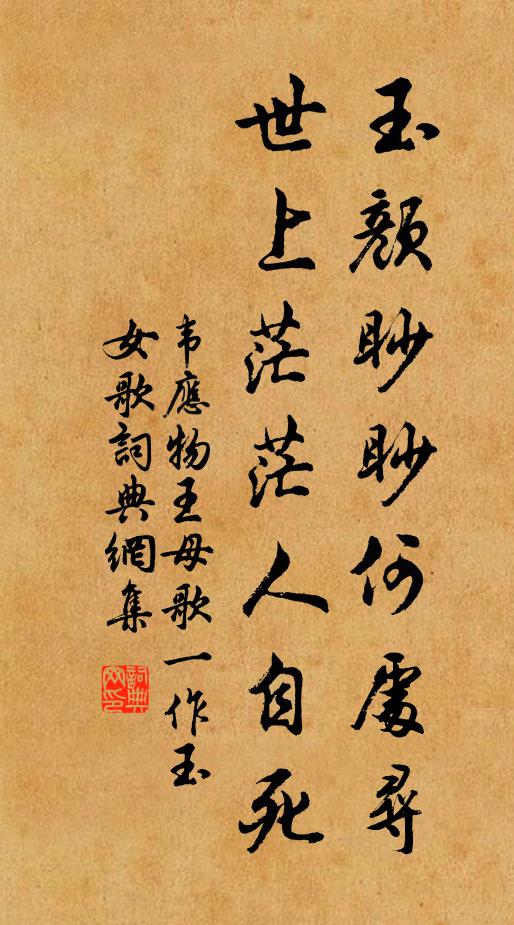 玉顏眇眇何處尋
世上茫茫人自死
韦應物王母歌一作玉
女歌詞典網集
詞典
网印